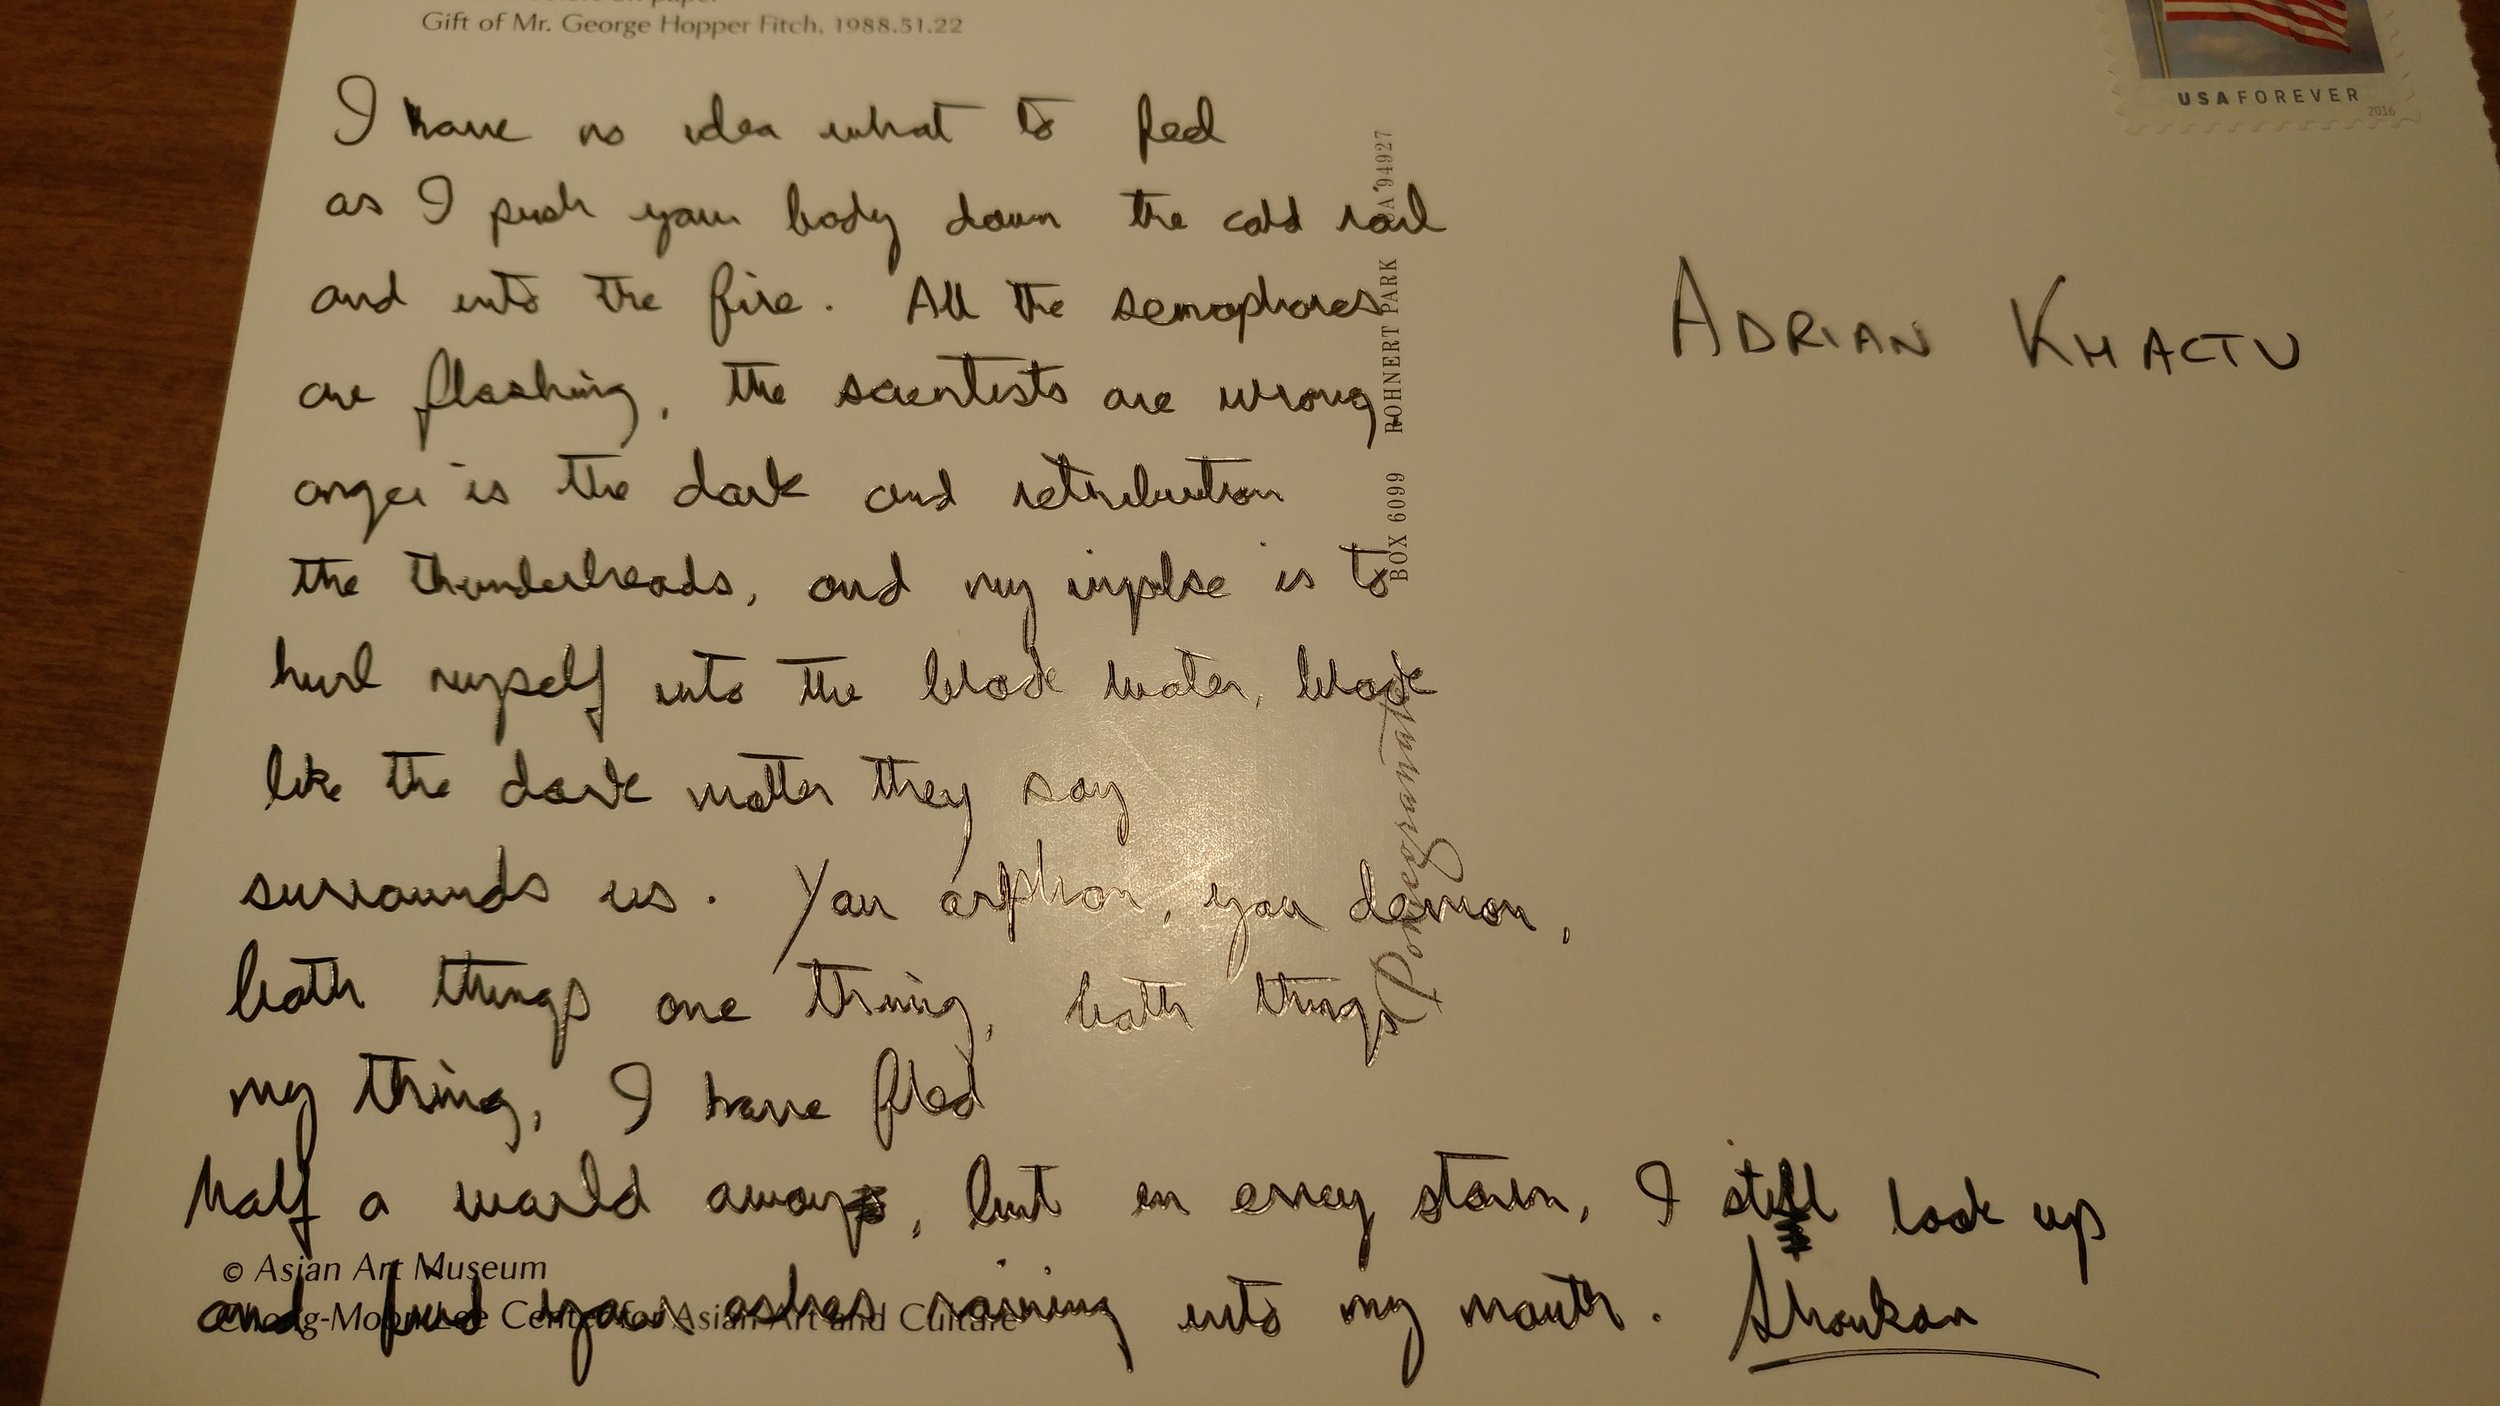 Gift of Mr. George Hopper Fitch, 1988.51.22
USA FOREVER
2016
I have no idea what to feel
as I push your body down the cold rail
and into the fire. All the semaphores
are flashing, the scientists are wrong
anger is the dark and retribution
the thunderheads, and my inplse is to
hurl myself into the black water, black
like the dark matter they say
surrounds us. You orphan, you demon,
both things one thing, both things
my thing, I have fled
half a world away, but in every storm, I still look up
and find your ashes raining into my mouth. Shoukan
ADRIAN KHACTU
© Asian Art Museum
Chong-Moon Lee Center for Asian Art and Culture
Pomegranate BOX 6099 ROHNERT PARK CA 94927